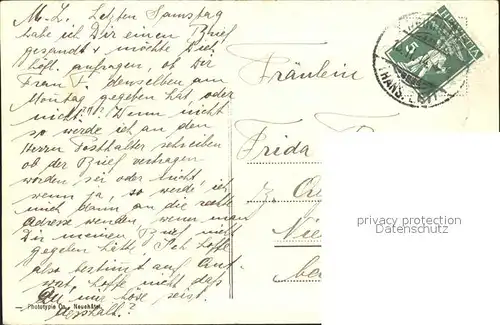 M. L. Letzten Samstag
habe ich Dir einen Brief
gesandt & möchte Dich
höfl. anfragen, ob Dir
Frau T. denselben am
Montag gegeben hat, oder
nicht? Wenn nicht
so werde ich an den
Herrn Posthalter schreiben
ob der Brief vertragen
worden sei oder nicht,
wenn ja, so werde ich
mich dann an die rechte
Adresse wenden, wenn man
Dir meinen Brief nicht
gegeben hätte. Ich hoffe
also bestimmt auf Ant-
wort, hoffe nicht daß
Du mir böse seist.
Weshalb?
Phototypie Co., Neuchâtel
Fräulein
Frida
z.
HELVETIA
5
privacy protection
Datenschutz